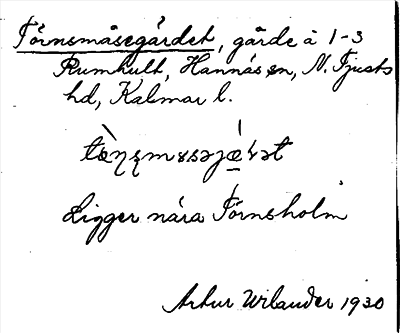 Törnsmåsegärdet, gärde å 1-3
Rumhult, Hannäs sn, N. Tjusts
hd, Kalmar l.
Ligger nära Törnsholm
Artur Wilander 1930